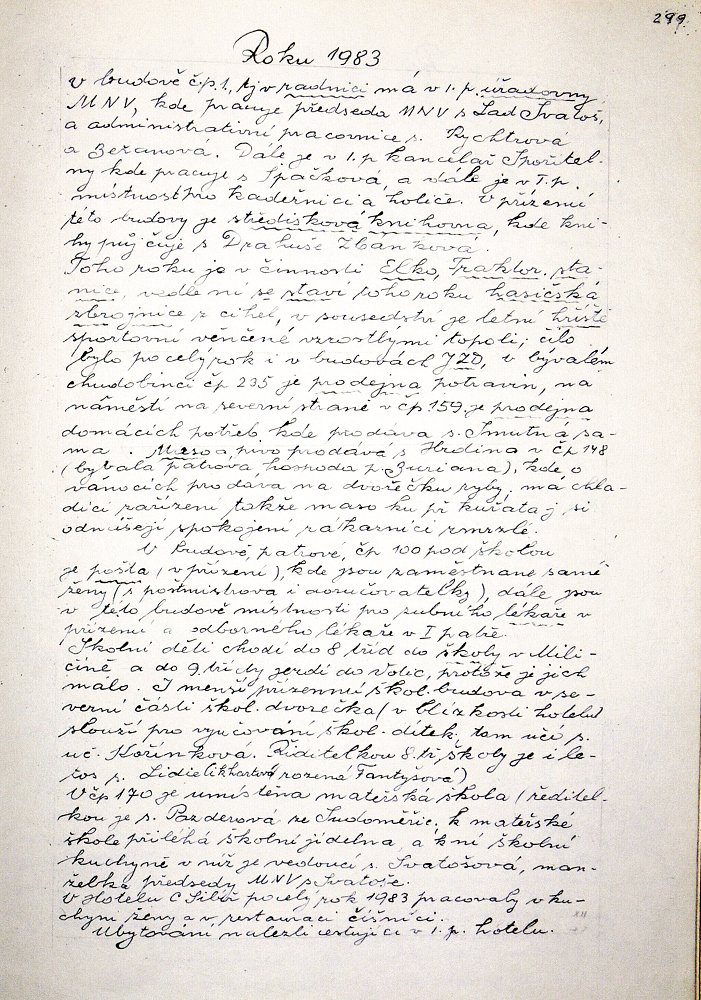 299
Roku 1983
v budově č.p.1, tj v radnici má v 1.p. úřadovny
MNV, kde pracuje předseda MNV s Lad Svatoš,
a administrativní pracovnice s. Rychtrová
a Bezanová. Dále je v 1.p kancelář Spořitel-
ny kde pracuje s Špačková, a dále je v I.p.
místnost pro kadeřnici a holiče. V přízemí
této budovy je středisková knihovna, kde kni-
hy půjčuje s Drahuše Zbanková.
Toho roku je v činnosti Elko, Traktor. sta-
nice, vedle ní se staví toho roku hasičská
zbrojnice z cihel, v sousedství je letní hřiště
sportovní věnčené vzrostlými topoli; čilo
bylo po celý rok i v budovách JZD, v bývalém
chudobinci čp 235 je prodejna potravin, na
náměstí na severní straně v čp 159, je prodejna
domácích potřeb, kde prodává s. Smutná sa-
ma. Maso a pivo prodává s Hrdina v čp 148
(bývalá patrová hospoda p. Buriana), kde o
vánocích prodává na dvorečku ryby, má chla-
dící zařízení takže maso ku př kuřata j si
odnášejí spokojení zákazníci zmrzlé.
V budově, patrové, čp 100 pod školou
je pošta (v přízemí), kde jsou zaměstnané samé
ženy (s poštmistrova i doručovatelky), dále jsou
v této budově místnosti pro zubního lékaře v
přízemí a odborného lékaře v I patře.
Školní děti chodí do 8 tříd do školy v Mili-
číně a do 9. třídy jezdí do Votic, protože je jich
málo. I menší přízemní škol. budova v se-
verní části škol. dvorečka (v blízkosti hotelu)
slouží pro vyučování škol. dítek, tam učí s.
uč. Kořínková. Ředitelkou 8.tř školy je i le-
tos s. Lidie Cikhartová (rozená Fantysová)
V čp 170 je umístěna mateřská škola (ředitel-
kou je s. Pazderová ze Sudoměřic, k mateřské
škole přiléhá školní jídelna, a k ní školní
kuchyně v níž je vedoucí s. Svatošová, man-
želka předsedy MNV s Svatoše.
V Hotelu C Silíř po celý rok 1983 pracovaly v ku-
chyni ženy a v restauraci číšníci.
Ubytování nalezli cestující v 1. p. hotelu.